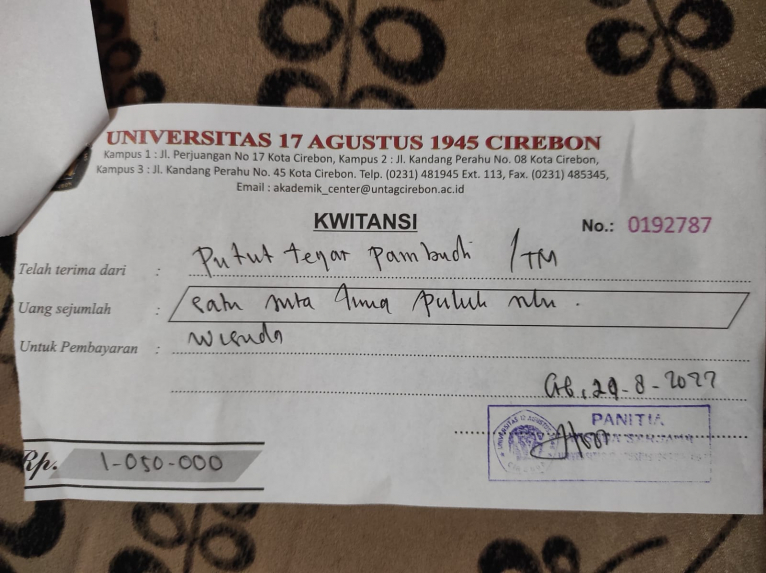 UNIVERSITAS 17 AGUSTUS 1945 CIREBON
Kampus 1 : Jl. Perjuangan No 17 Kota Cirebon, Kampus 2 : Jl. Kandang Perahu No. 08 Kota Cirebon,
Kampus 3 : Jl. Kandang Perahu No. 45 Kota Cirebon. Telp. (0231) 481945 Ext. 113, Fax. (0231) 485345,
Email : akademik_center@untagcirebon.ac.id
KWITANSI
No.: 0192787
Telah terima dari : Putut tegar Pambudi / TM
Uang sejumlah : satu juta lima puluh ribu .
Untuk Pembayaran : wisuda
29-8-2022
PANITIA
Rp. 1-050-000